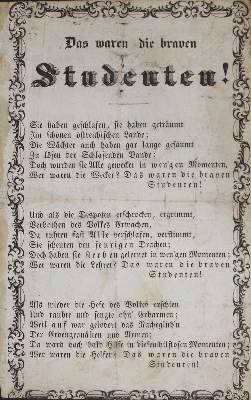 Das waren die braven
Studenten!
Sie haben geschlafen, sie haben geträumt
Im schönen östreichischen Lande;
Die Wächter auch haben gar lange gesäumt
Zu lösen der Schlafenden Bande;
Doch wurden sie Alle gewecket in wen'gen Momenten,
Wer waren die Wecker? Das waren die braven
Studenten!
Und als die Despoten erschrocken, ergrimmt,
Verbothen des Volkes Erwachen,
Da riefen fast Alle verschlafen, verstimmt,
Sie scheuten den feurigen Drachen;
Doch haben sie sterben gelernet in wenigen Momenten;
Wer waren die Lehrer? Das waren die braven
Studenten!
Als wieder die Hefe des Volkes erschien
Und raubte und sengte ohn' Erbarmen,
Weil auf war gelodert das
Der Grenzenzöllen und Armen;
Da ward doch bald Hilfe in diesen hilflosen Momenten;
Wer waren die Helfer? Das waren die braven
Studenten!